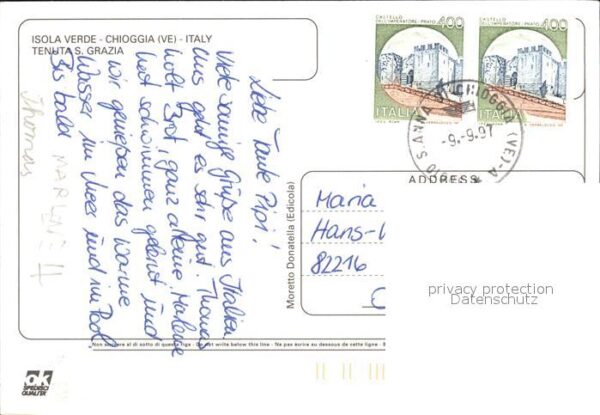 ISOLA VERDE - CHIOGGIA (VE) - ITALY
TENUTA S. GRAZIA
Liebe Tante Pipi!
Viele sonnige Grüße aus Italien
uns geht es sehr gut. Thomas
holt Brot ganz alleine, Marlene
hat schwimmen gelernt und
wir genießen das warme
Wasser im Meer und im Pool
Bis bald
Thomas
MARLENE
Moretto Donatella (Edicola)
CASTELLO DELL'IMPERATORE · PRATO 400
ITALIA
CASTELLO DELL'IMPERATORE · PRATO 400
ITALIA
S. ANNA DI CHIOGGIA (VE) - A
-9.-9.97
ADDRESS
Maria
Hans-
82216
privacy protection
Datenschutz
Non scrivere al di sotto di questa riga - Do not write below this line - Ne pas écrire au dessous de cette ligne
ok
SPEDIBILI
QUALITÀ